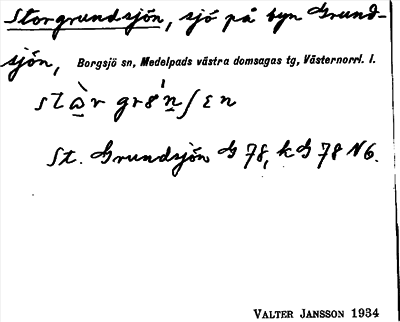 Storgrundsjön, sjö på byn Grund-
sjön, Borgsjö sn, Medelpads västra domsagas tg, Västernorrl. l.
St. Grundsjön G 78, k G 78 N6.
VALTER JANSSON 1934